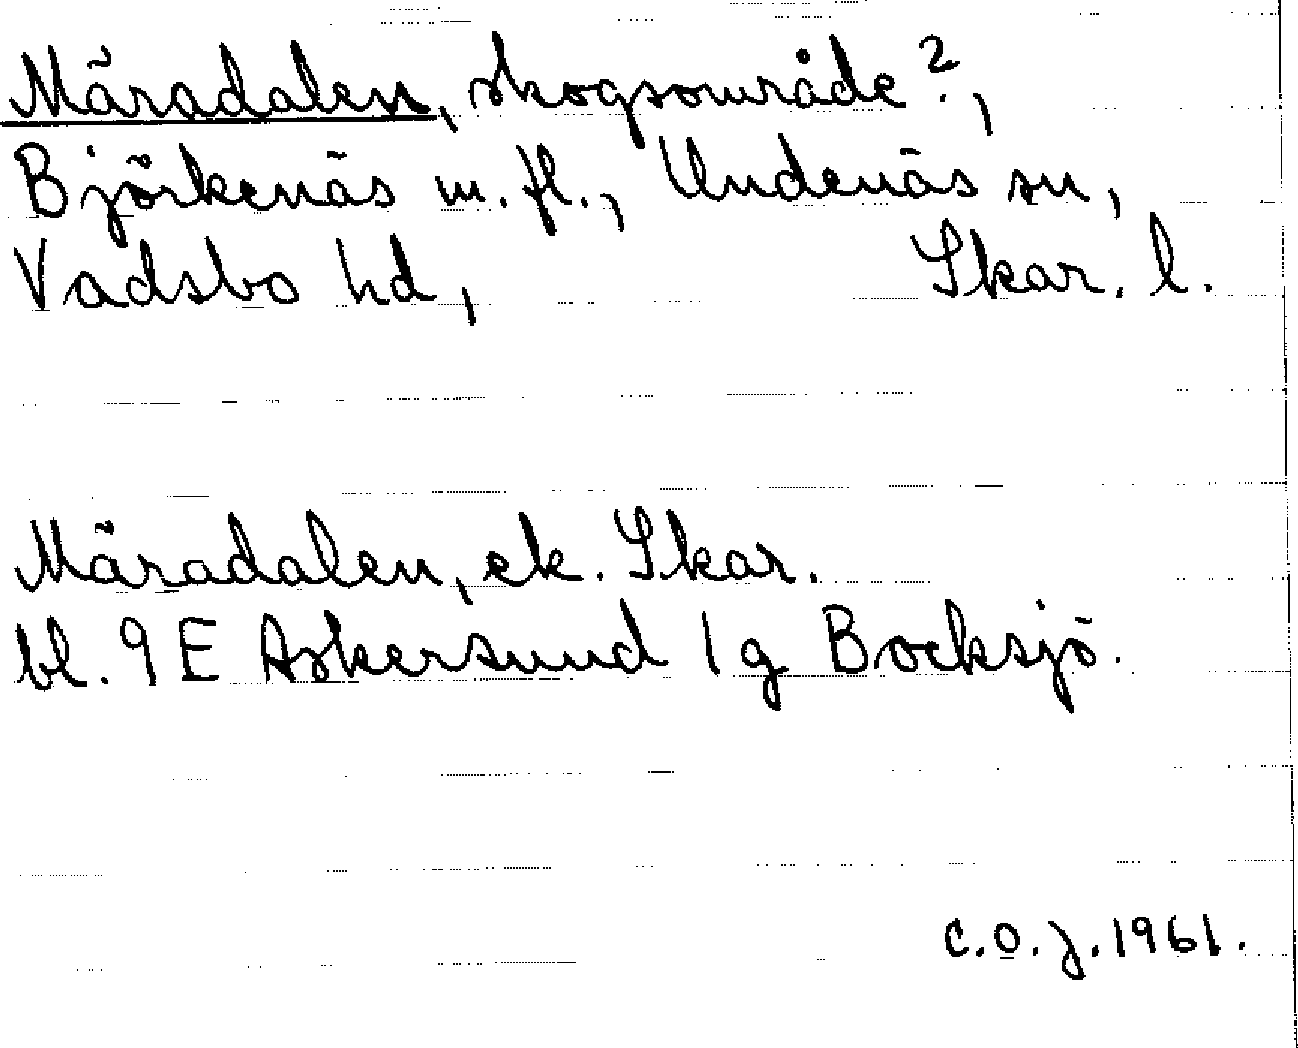 Märadalen, skogsområde?,
Björkenäs m. fl., Undenäs sn,
Vadsbo hd, Skar. l.
Märadalen, ek. Skar.
bl. 9 E Askersund 1g Bocksjö.
C.O.J. 1961.